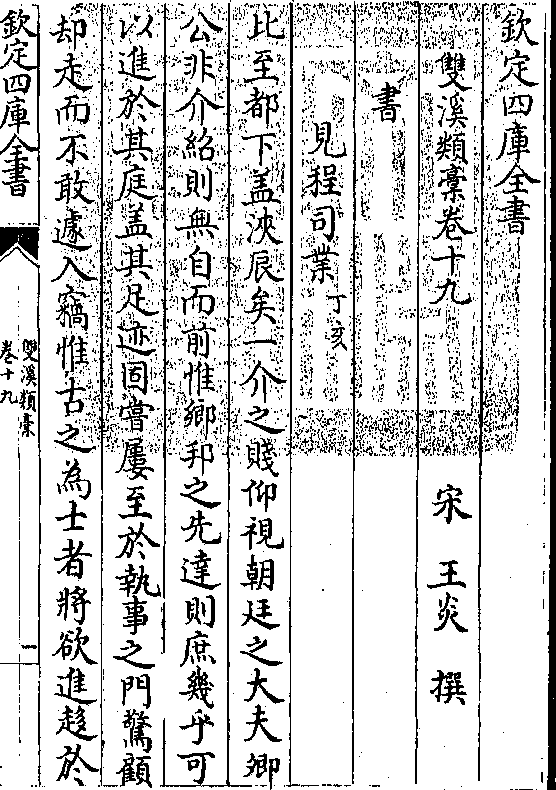 欽定四庫全書
雙溪類稾卷十九
宋 王炎 撰
書
見程司業丁亥
比至都下盖浹辰矣一介之賤仰視朝廷之大夫卿
公非介紹則無自而前惟鄉邦之先達則庶幾乎可
以進於其庭盖其足迹固嘗屢至於執事之門驚顧
却走而不敢遽入竊惟古之為士者將欲進趍於
欽定四庫全書
雙溪類稾
卷十九
一